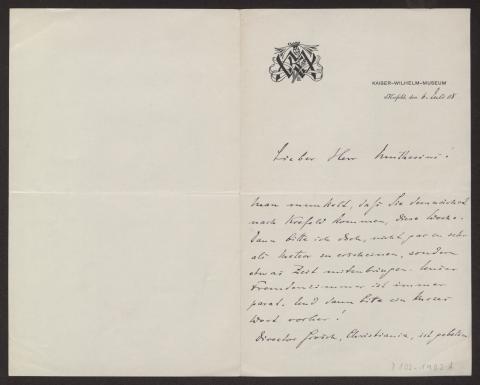 KAISER-WILHELM-MUSEUM
Krefeld, den 6. Juli 08
Lieber Herr Muthesius!
Man munkelt, daß Sie demnächst
nach Krefeld kommen, diese Woche.
Dann bitte ich doch, nicht gar zu sehr
als Meteor zu erscheinen, sondern
etwas Zeit mitzubringen. Unser
Fremdenzimmer ist immer
parat. Und dann bitte ein kurzes
Wort vorher!
Director Grosch, Christiania, ist gebeten